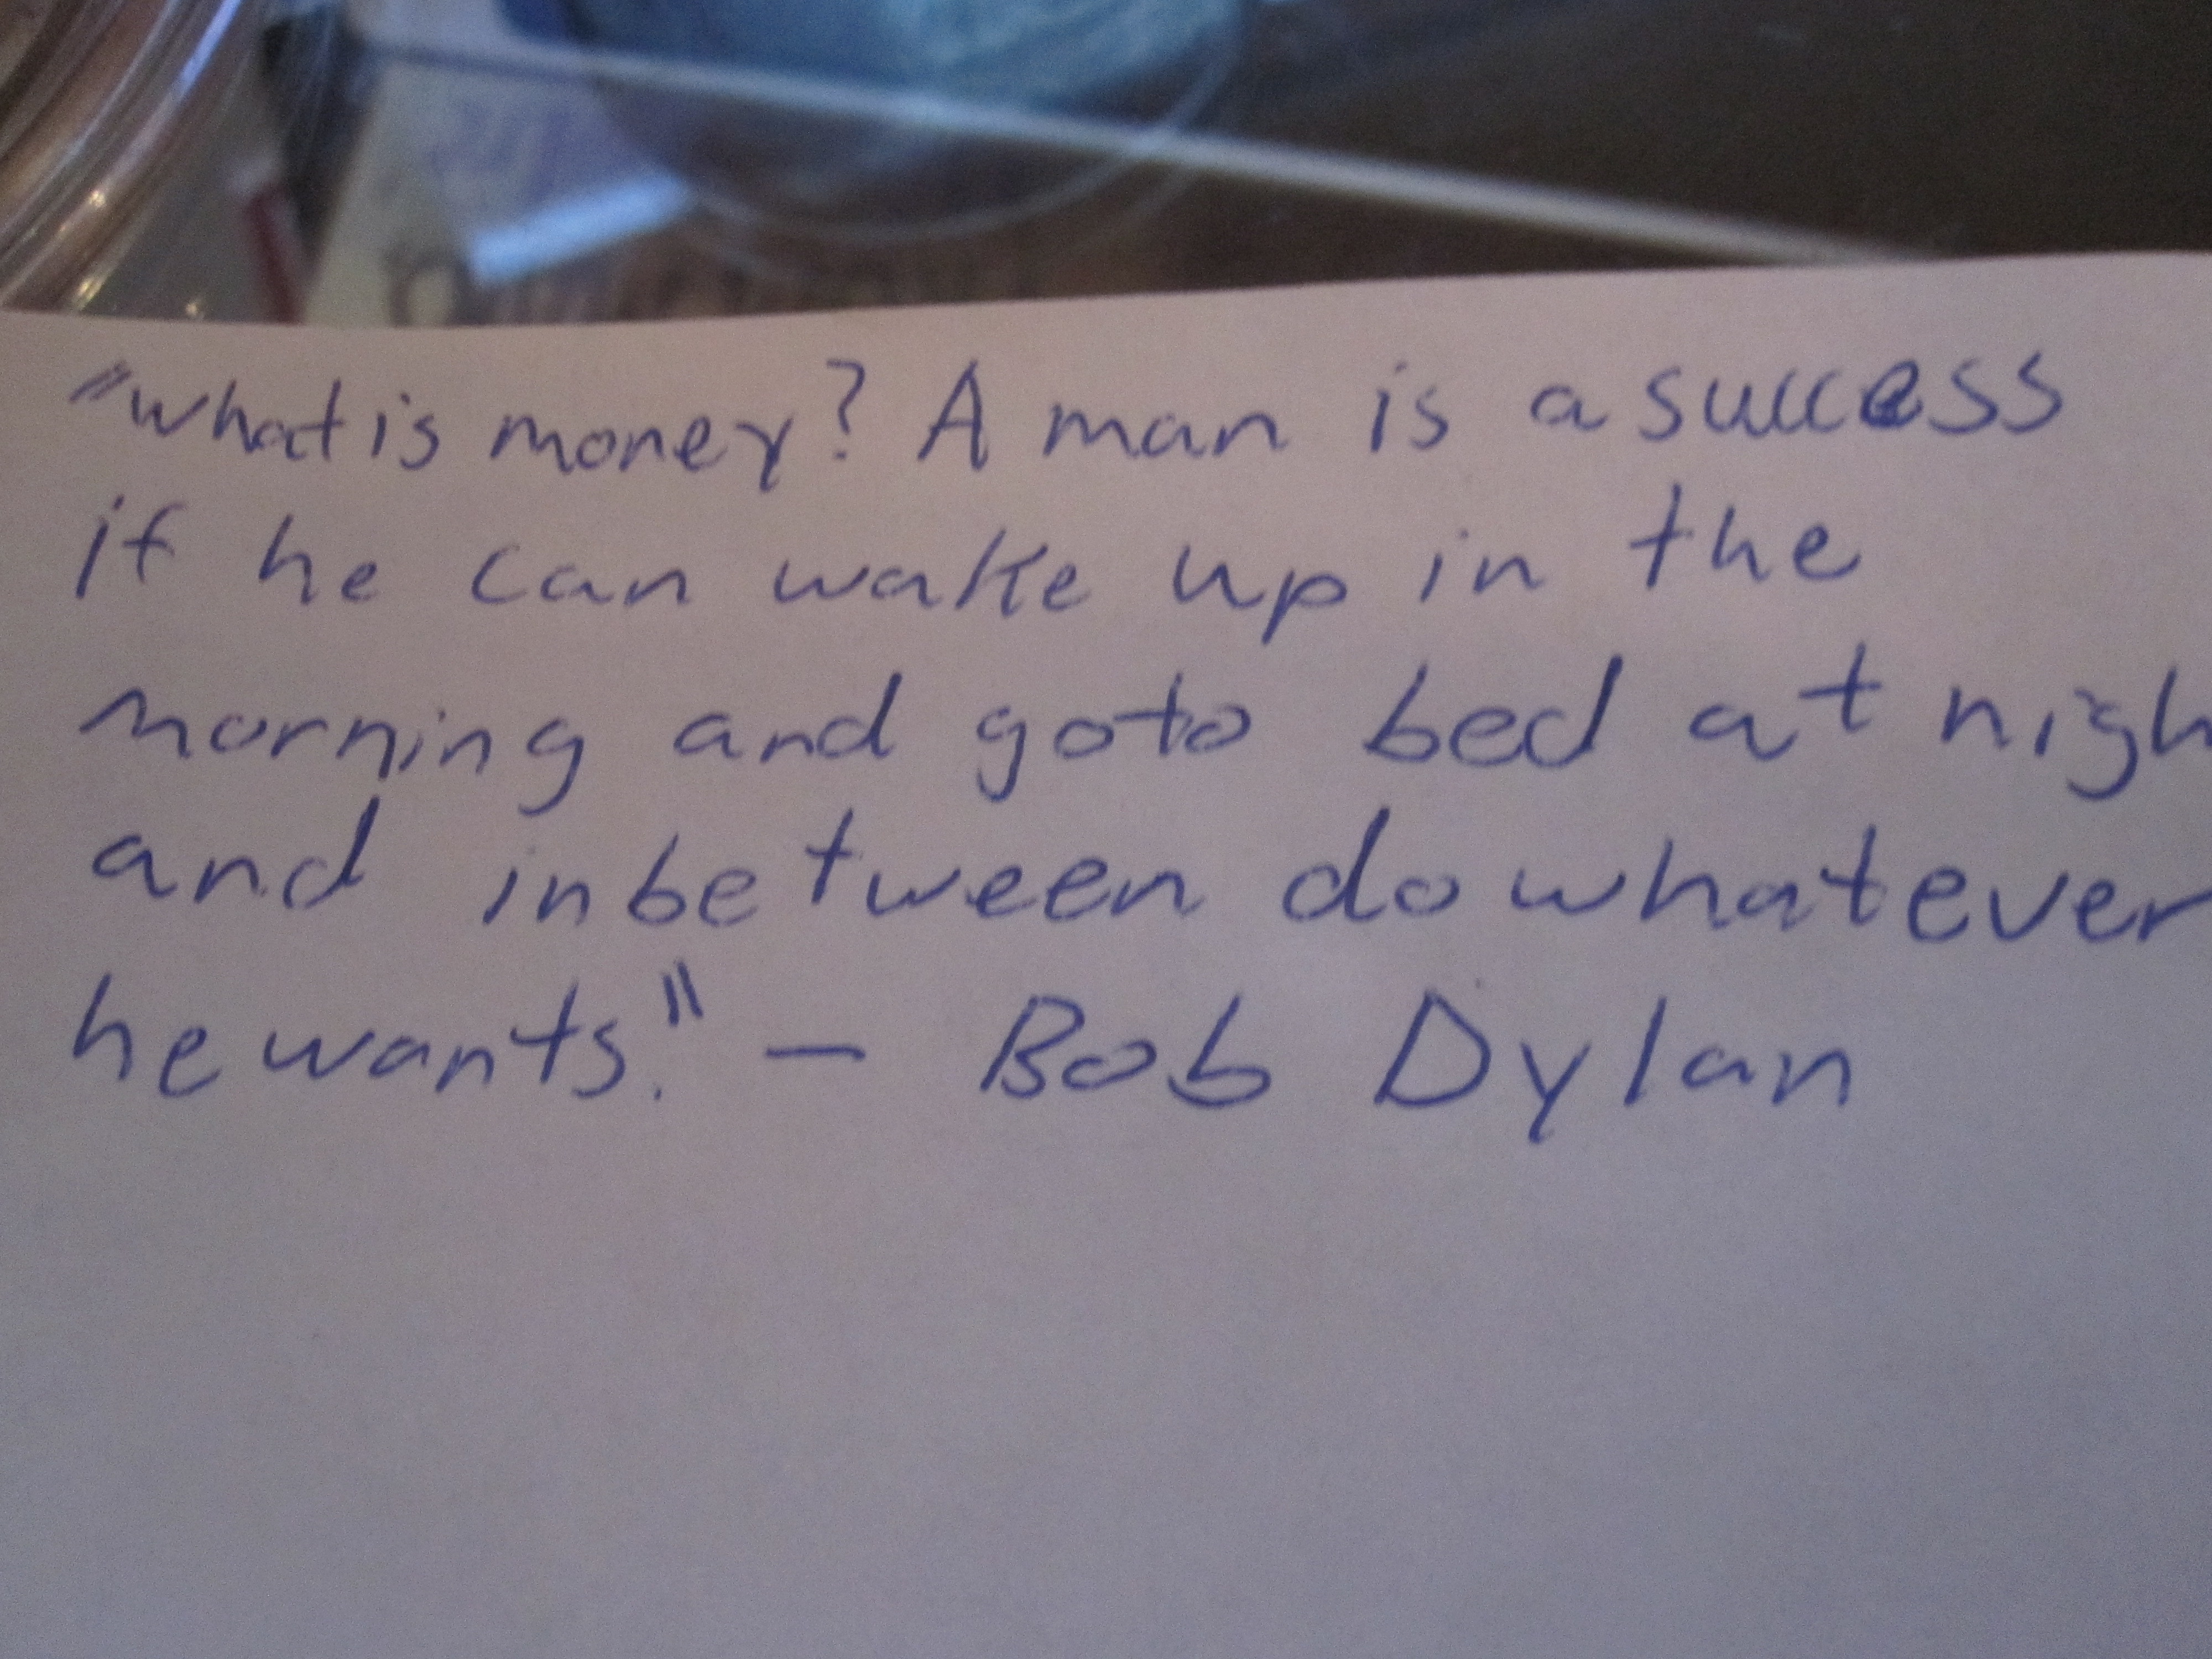 "what is money? A man is a success
if he can wake up in the
morning and go to bed at nigh
and inbetween do whatever
he wants." - Bob Dylan